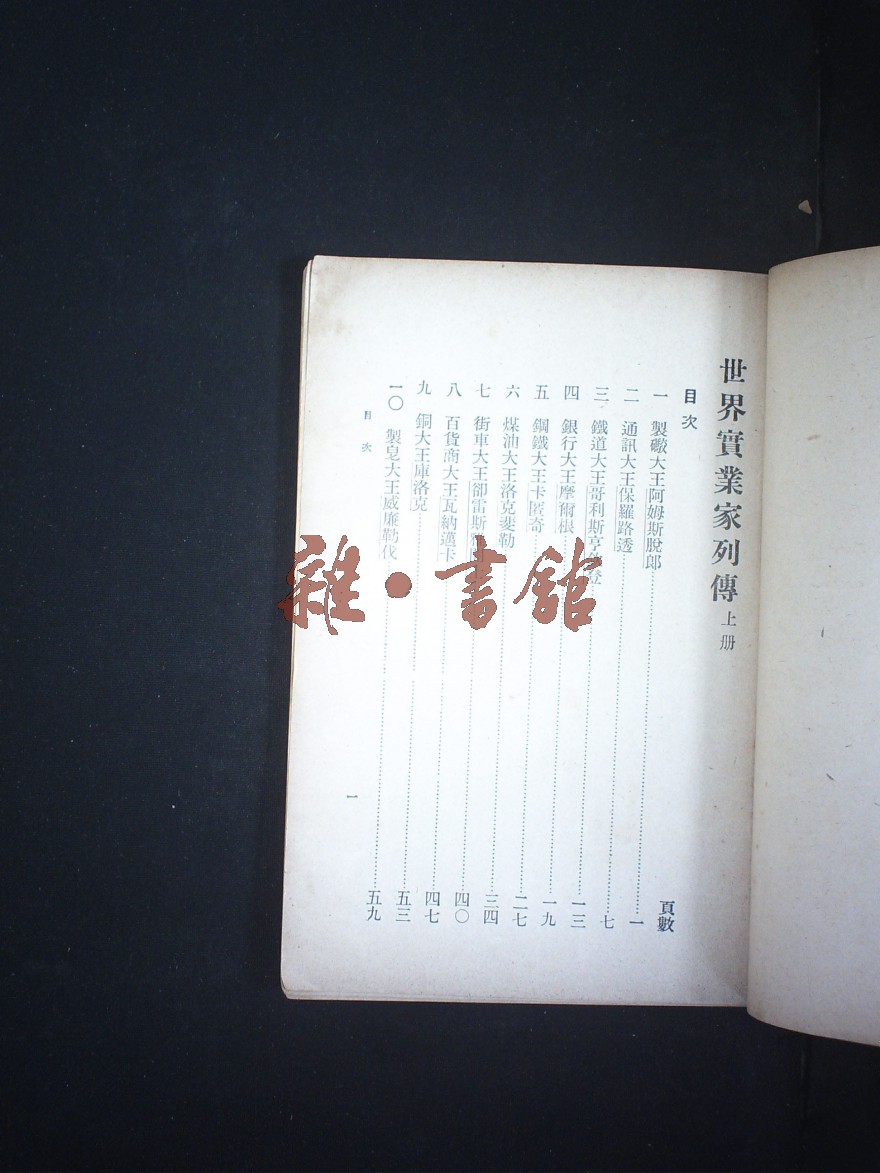 世界實業家列傳 上册
目次
頁數
一 製礮大王阿姆斯脫郎……一
二 通訊大王保羅路透……七
三 鐵道大王哥利斯亨 登……一三
四 銀行大王摩爾根……一九
五 鋼鐵大王卡匿奇……二七
六 煤油大王洛克斐勒……三四
七 街車大王卻雷斯……四〇
八 百貨商大王瓦納邁卡……四七
九 銅大王庫洛克……五三
一〇 製皂大王威廉勒伐……五九
目次
一
雜·書館